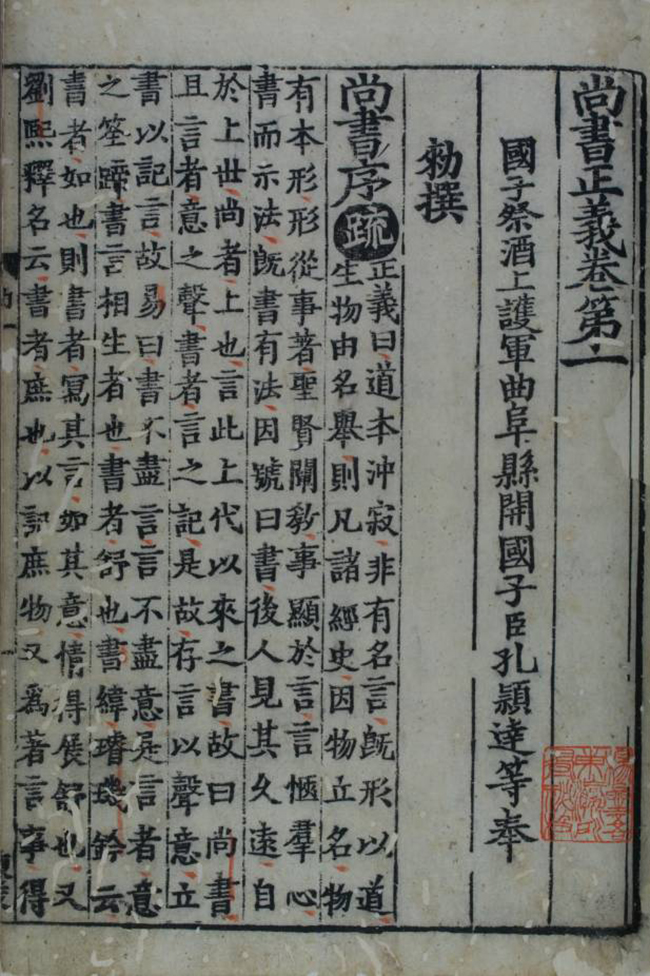 尚書正義卷第一
國子祭酒上護軍曲阜縣開國子臣孔穎達等奉
勑撰
尚書序疏正義曰道本沖寂非有名言既形以道
生物由名舉則凡諸經史因物立名物
有本形形從事著聖賢闡教事顯於言言愜羣心
書而示法既書有法因號曰書後人見其久遠自
於上世尚者上也言此上代以來之書故曰尚書
且言者意之聲書者言之記是故存言以聲意立
書以記言故易曰書不盡言言不盡意是言者意
之筌蹄書言相生者也書者舒也書緯璿璣鈐云
書者如也則書者寫其言如其意情得展舒也又
劉熙釋名云書者庶也以記庶物又爲著言事得
楊星吾
東瀛所
得秘笈